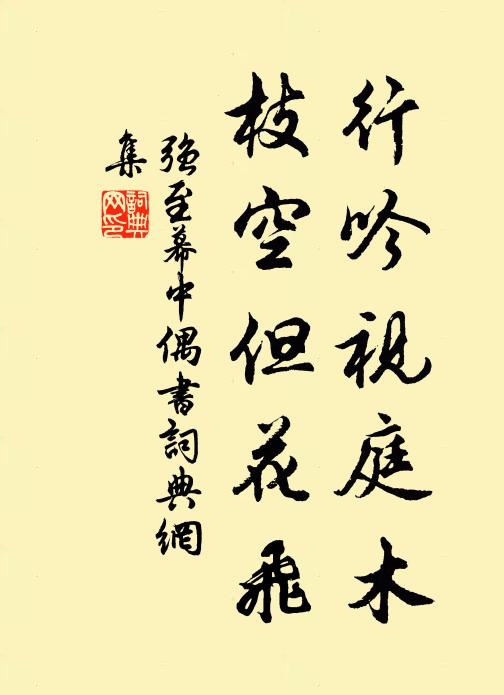 行吟視庭木
枝空但花飛
強至幕中偶書詞典網
集
詞典
网印